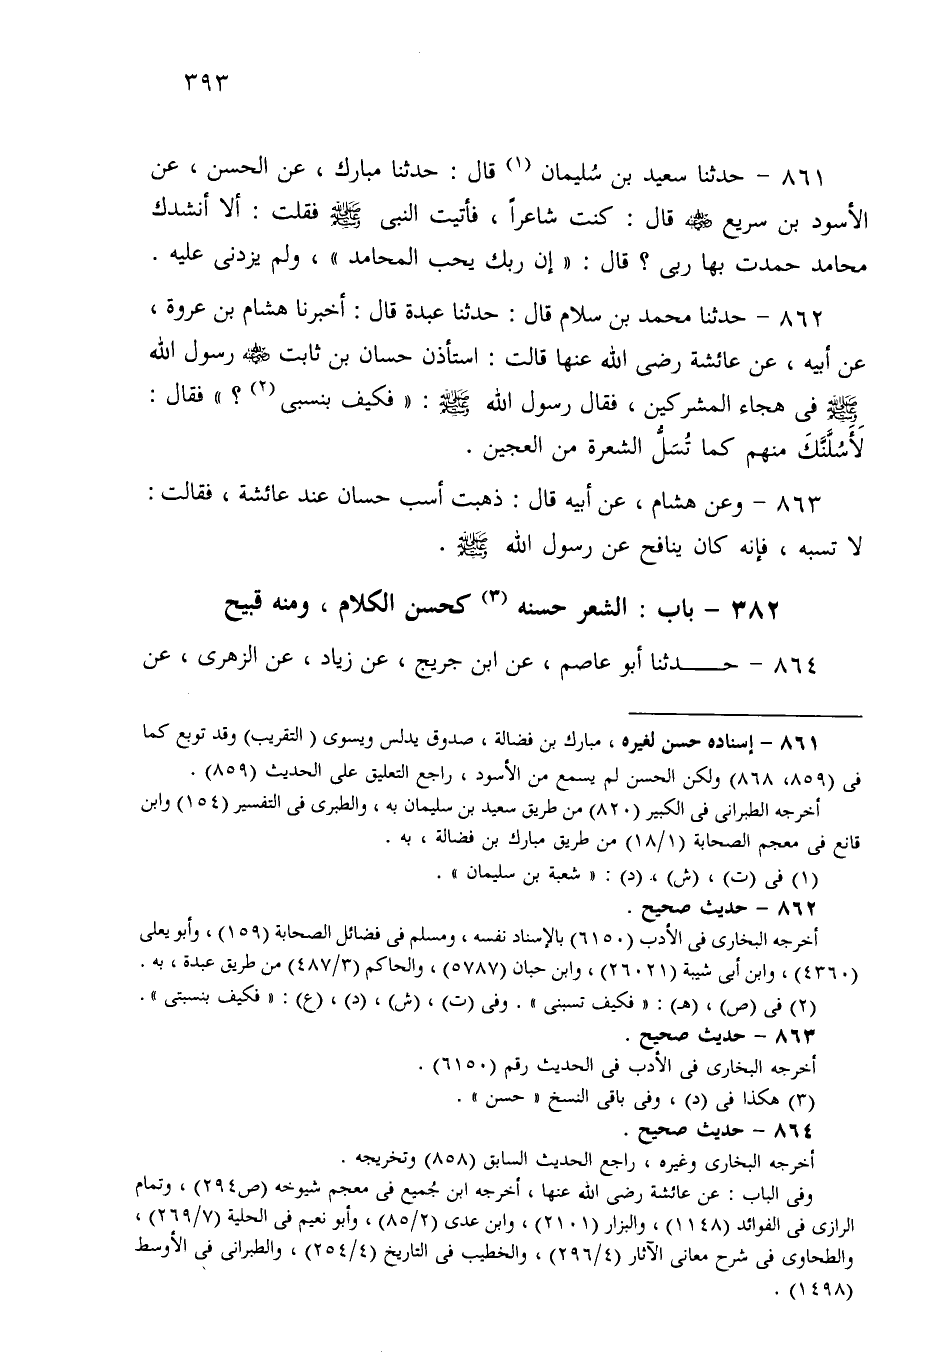 ٣٩٣
٨٦١ – حدثنا سعيد بن سُليمان (١) قال : حدثنا مبارك ، عن الحسن ، عن
الأسود بن سريع رضي الله عنه قال : كنت شاعراً ، فأتيت النبى ﷺ فقلت : ألا أنشدك
محامد حمدت بها ربى ؟ قال : « إن ربك يحب المحامد » ، ولم يزدنى عليه .
٨٦٢ – حدثنا محمد بن سلام قال : حدثنا عبدة قال : أخبرنا هشام بن عروة ،
عن أبيه ، عن عائشة رضى الله عنها قالت : استأذن حسان بن ثابت رضي الله عنه رسول الله
ﷺ فى هجاء المشركين ، فقال رسول الله ﷺ : « فكيف بنسبى (٢) ؟ » فقال :
لَأَسُلَّنَّكَ منهم كما تُسَلُّ الشعرة من العجين .
٨٦٣ – وعن هشام ، عن أبيه قال : ذهبت أسب حسان عند عائشة ، فقالت :
لا تسبه ، فإنه كان ينافح عن رسول الله ﷺ .
٣٨٢ – باب : الشعر حسنه (٣) كحسن الكلام ، ومنه قبيح
٨٦٤ – حـــدثنا أبو عاصم ، عن ابن جريج ، عن زياد ، عن الزهرى ، عن
٨٦١ – إسناده حسن لغيره ، مبارك بن فضالة ، صدوق يدلس ويسوى ( التقريب) وقد توبع كما
فى (٨٥٩، ٨٦٨) ولكن الحسن لم يسمع من الأسود ، راجع التعليق على الحديث (٨٥٩) .
أخرجه الطبرانى فى الكبير (٨٢٠) من طريق سعيد بن سليمان به ، والطبرى فى التفسير (١٥٤) وابن
قانع فى معجم الصحابة (١٨/١) من طريق مبارك بن فضالة ، به .
(١) فى (ت) ، (ش) ، (د) : « شعبة بن سليمان » .
٨٦٢ – حديث صحيح .
أخرجه البخارى فى الأدب (٦١٥٠) بالإسناد نفسه ، ومسلم فى فضائل الصحابة (١٥٩) ، وأبو يعلى
(٤٣٦٠) ، وابن أبى شيبة (٢٦٠٢١) ، وابن حبان (٥٧٨٧) ، والحاكم (٤٨٧/٣) من طريق عبدة ، به .
(٢) فى (ص) ، (هـ) : « فكيف تسبنى » . وفى (ت) ، (ش) ، (د) ، (ع) : « فكيف بنسبتى » .
٨٦٣ – حديث صحيح .
أخرجه البخارى فى الأدب فى الحديث رقم (٦١٥٠) .
(٣) هكذا فى (د) ، وفى باقى النسخ « حسن » .
٨٦٤ – حديث صحيح .
أخرجه البخارى وغيره ، راجع الحديث السابق (٨٥٨) وتخريجه .
وفى الباب : عن عائشة رضى الله عنها ، أخرجه ابن جُميع فى معجم شيوخه (ص٢٩٤) ، وتمام
الرازى فى الفوائد (١١٤٨) ، والبزار (٢١٠١) ، وابن عدى (٨٥/٢) ، وأبو نعيم فى الحلية (٢٦٩/٧) ،
والطحاوى فى شرح معانى الآثار (٢٩٦/٤) ، والخطيب فى التاريخ (٢٥٤/٤) ، والطبرانى فى الأوسط
(١٤٩٨) .